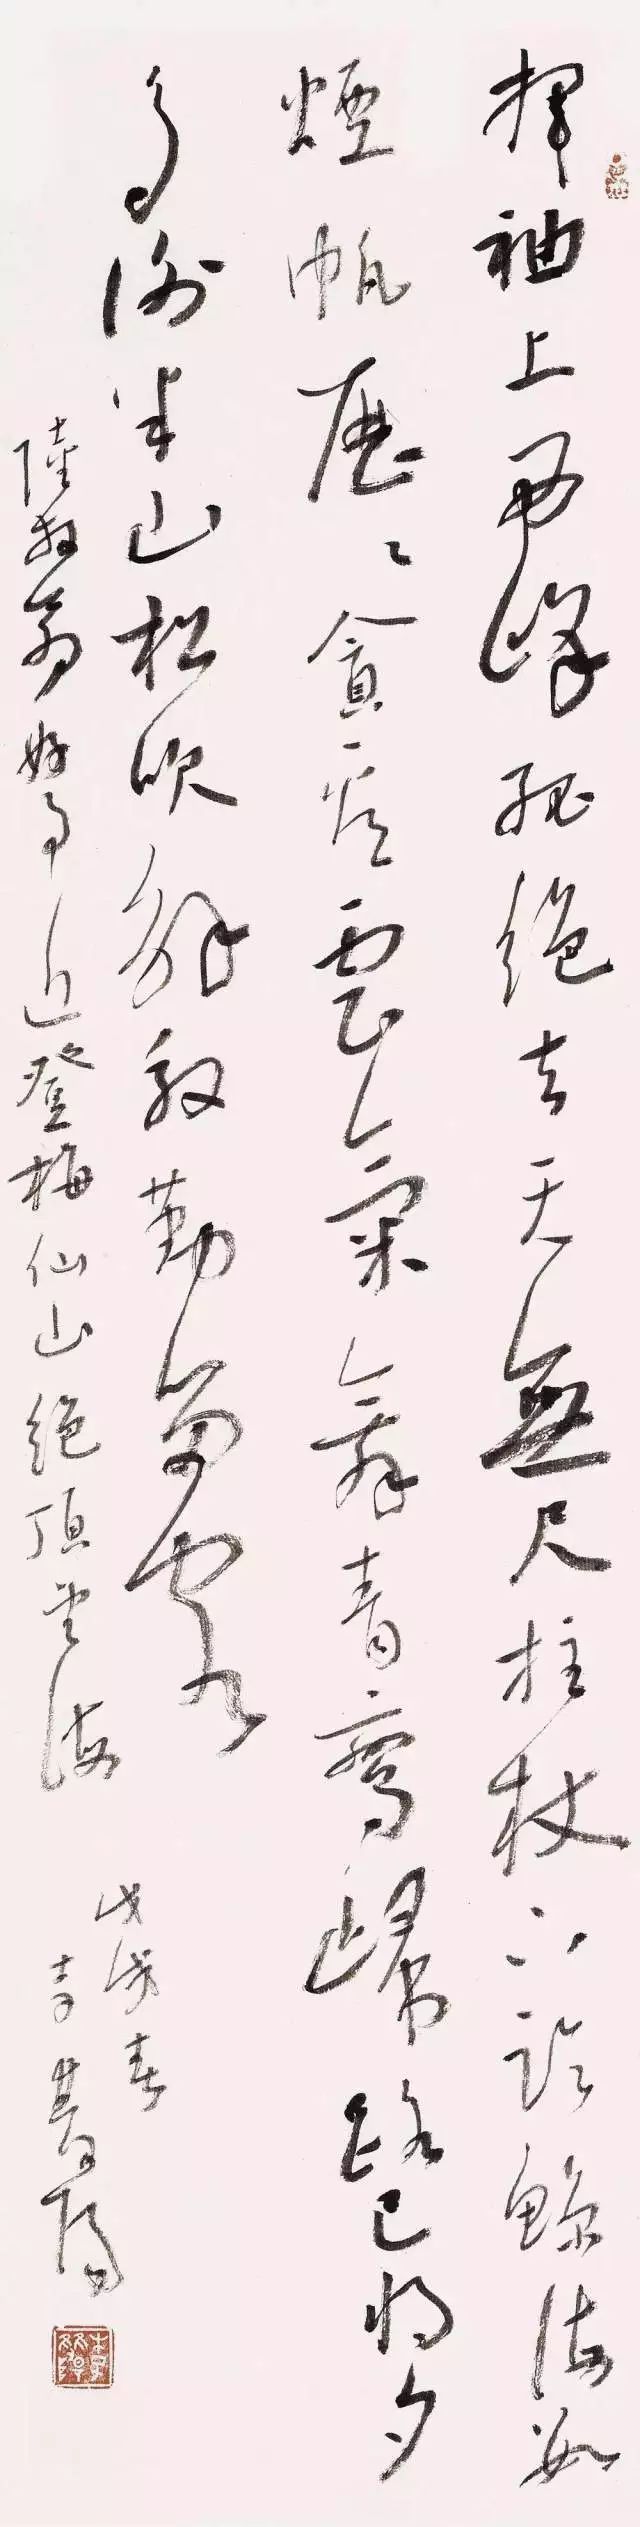 揮袖上西峰孤絕去天無尺拄杖下臨鯨海數
煙帆歷〻貪看雲氣舞青鸞歸路已將夕
多謝半山松吹解殷勤留客
陸放翁好事近登梅仙山絕頂望海
戊戌春
李